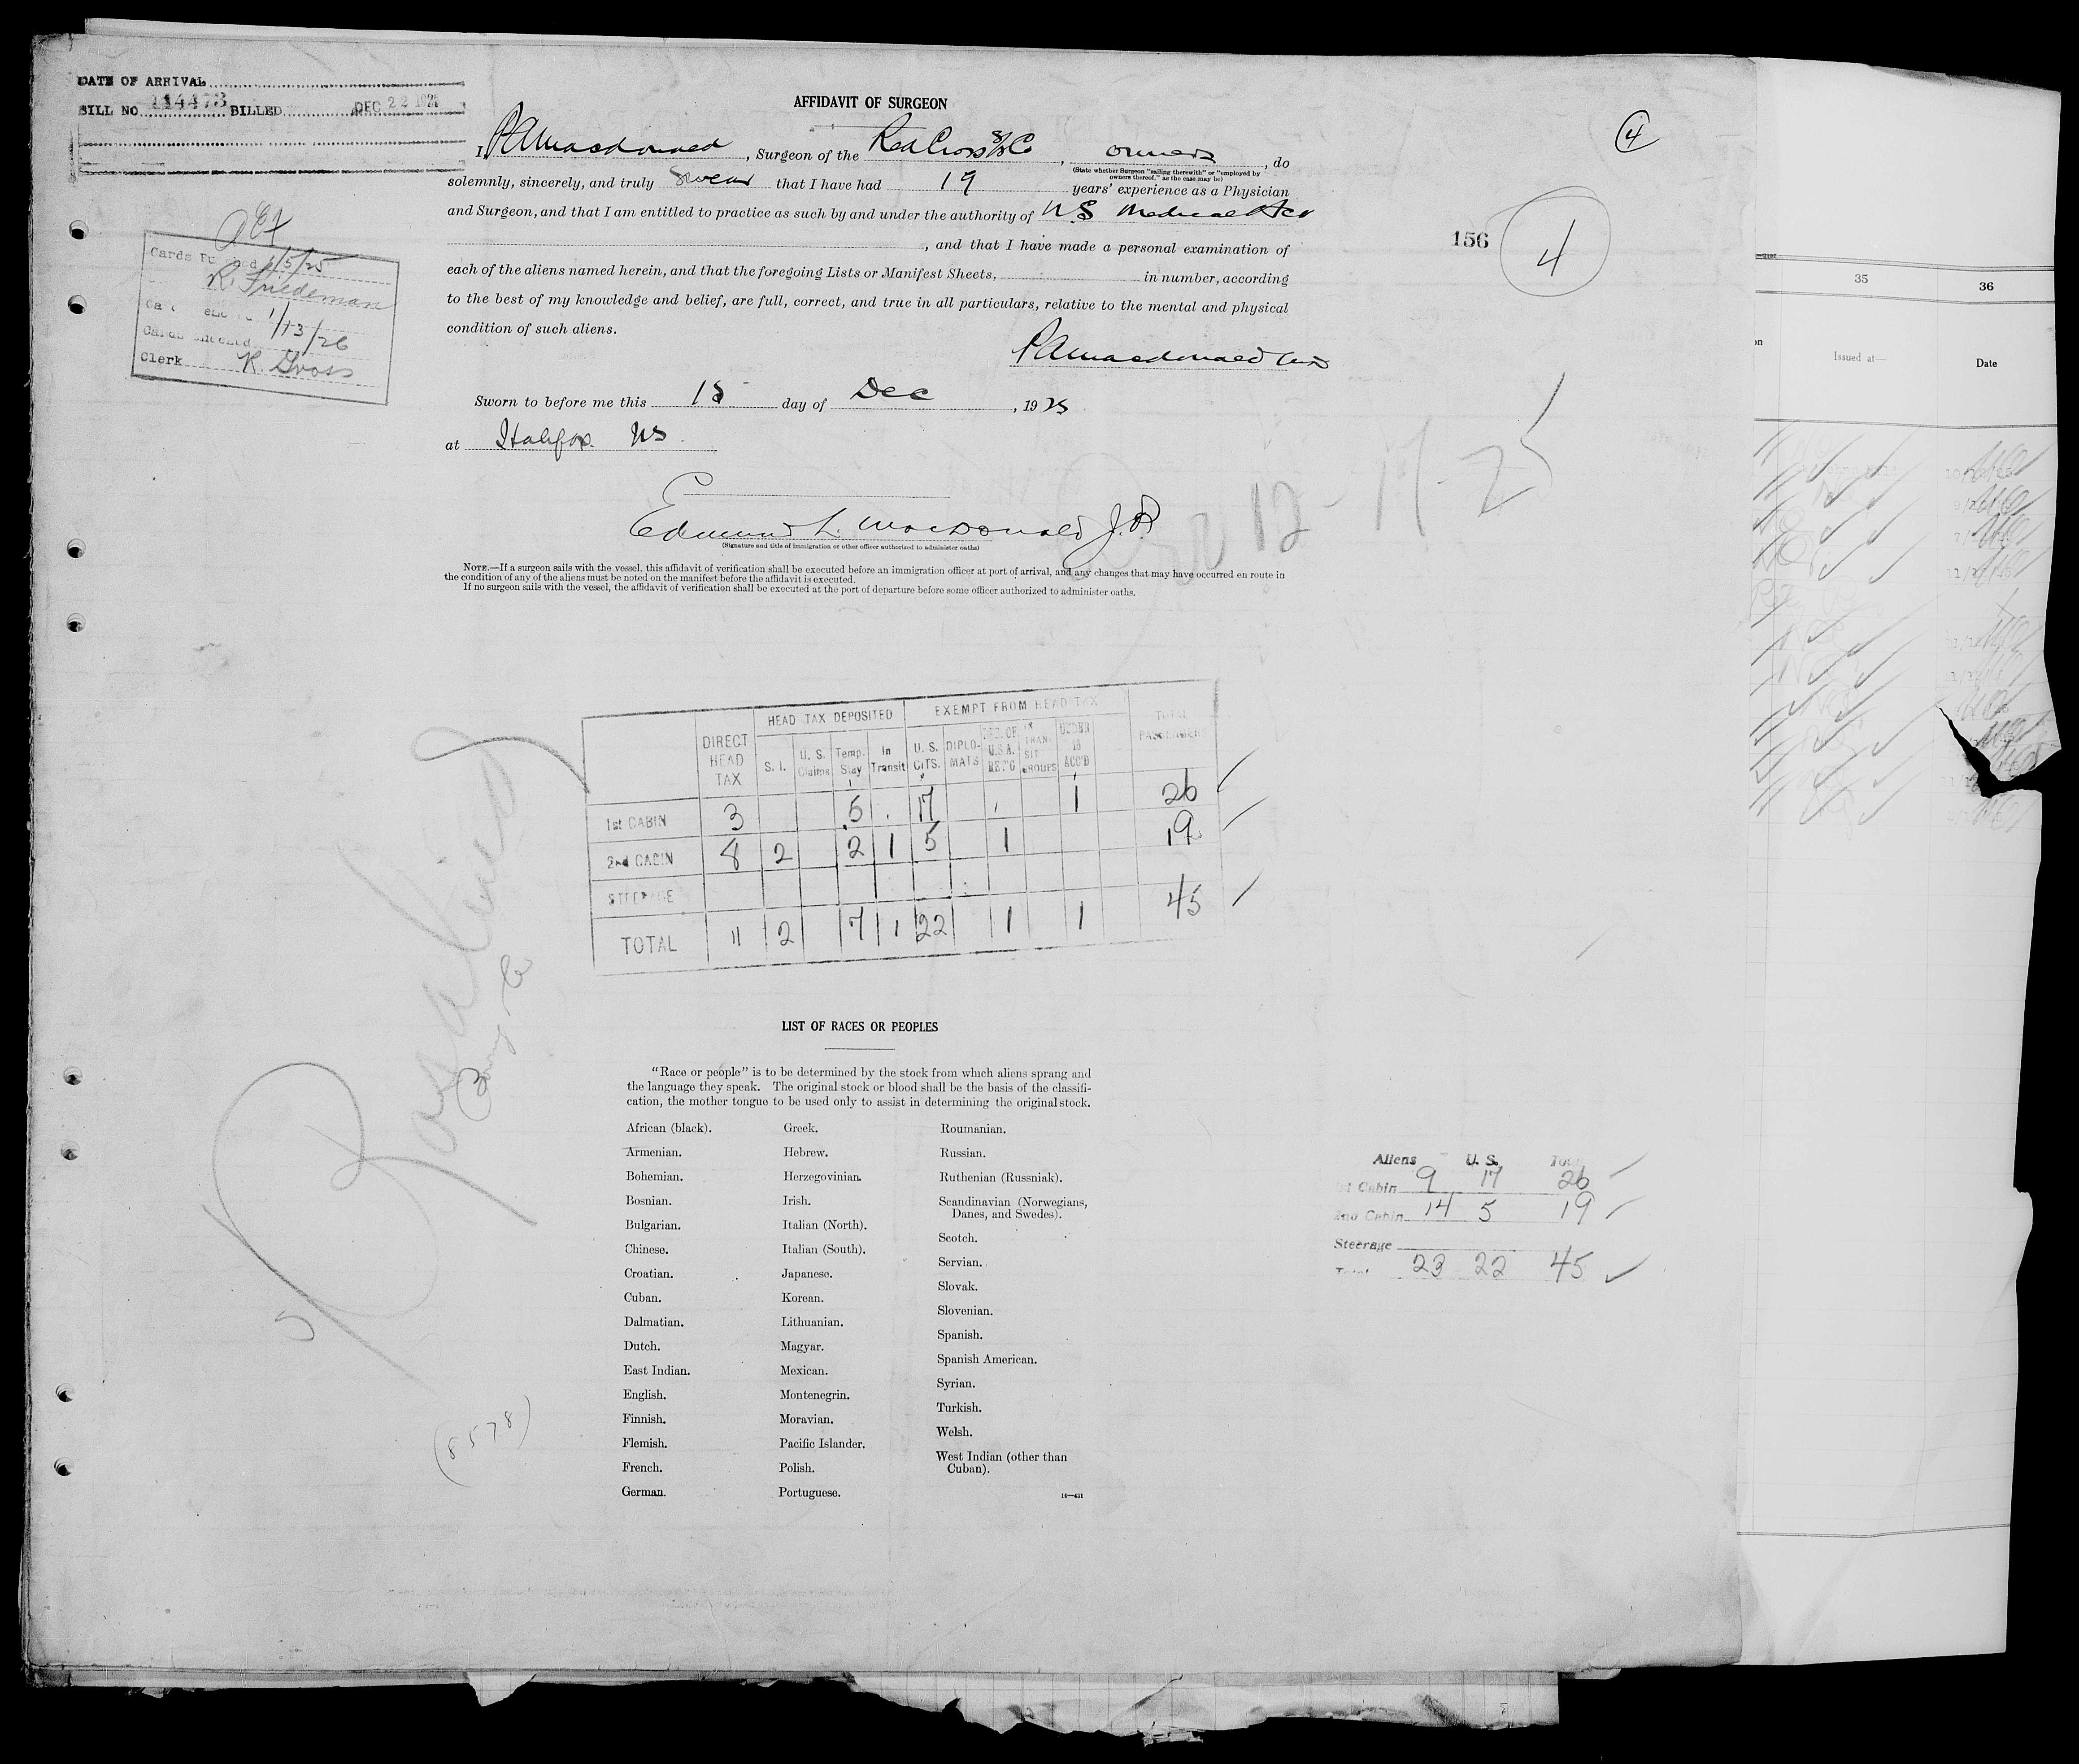 DATE OF ARRIVAL
BILL NO 114473 BILLED DEC 22 1925
AFFIDAVIT OF SURGEON
4
I, P A Macdonald, Surgeon of the Red Cross S/S Co, owners, do
(State whether Surgeon "sailing therewith" or "employed by
owners thereof," as the case may be)
solemnly, sincerely, and truly swear that I have had 19 years' experience as a Physician
and Surgeon, and that I am entitled to practice as such by and under the authority of NS Medical Act
, and that I have made a personal examination of
156
4
each of the aliens named herein, and that the foregoing Lists or Manifest Sheets, in number, according
to the best of my knowledge and belief, are full, correct, and true in all particulars, relative to the mental and physical
condition of such aliens.
P A Macdonald MD
Cards Punched 1/5/25
R. Friedeman
1/13/26
Clerk R. Gross
Sworn to before me this 15 day of Dec, 1925
at Halifax NS.
12-17-25
Edmund L. MacDonald J.P.
(Signature and title of immigration or other officer authorized to administer oaths)
NOTE.—If a surgeon sails with the vessel, this affidavit of verification shall be executed before an immigration officer at port of arrival, and any changes that may have occurred en route in
the condition of any of the aliens must be noted on the manifest before the affidavit is executed.
If no surgeon sails with the vessel, the affidavit of verification shall be executed at the port of departure before some officer authorized to administer oaths.
35 36
Issued at— Date
HEAD TAX DEPOSITED EXEMPT FROM HEAD TAX TOTAL PASSENGERS
DIRECT HEAD TAX S. I. U. S. Claims Temp. Stay In Transit U. S. CITS. DIPLO-MATS RES. OF U.S.A. RET'G IN TRAN-SIT GROUPS UNDER 16 ACC'D
1st CABIN 3 5 17 1 26
2nd CABIN 8 2 2 1 5 1 19
STEERAGE
TOTAL 11 2 7 1 22 1 1 45
Rosalind
LIST OF RACES OR PEOPLES
"Race or people" is to be determined by the stock from which aliens sprang and
the language they speak. The original stock or blood shall be the basis of the classifi-
cation, the mother tongue to be used only to assist in determining the original stock.
African (black). Greek. Roumanian.
Armenian. Hebrew. Russian.
Bohemian. Herzegovinian. Ruthenian (Russniak).
Bosnian. Irish. Scandinavian (Norwegians,
Danes, and Swedes).
Bulgarian. Italian (North).
Chinese. Italian (South). Scotch.
Croatian. Japanese. Servian.
Cuban. Korean. Slovak.
Dalmatian. Lithuanian. Slovenian.
Dutch. Magyar. Spanish.
East Indian. Mexican. Spanish American.
English. Montenegrin. Syrian.
Finnish. Moravian. Turkish.
Flemish. Pacific Islander. Welsh.
French. Polish. West Indian (other than
Cuban).
German. Portuguese.
16—431
Aliens U. S. Total
1st Cabin 9 17 26
2nd Cabin 14 5 19
Steerage
Total 23 22 45
(8578)